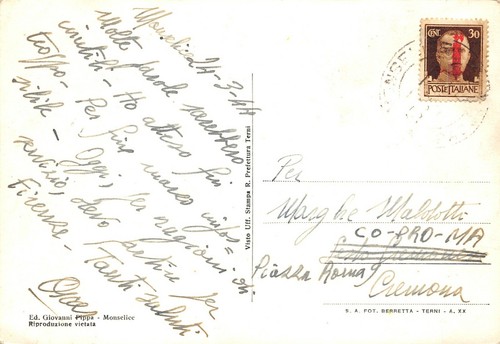 Monselice 24-3-44
Molto prode sarebbero
inutili - Ho atteso fin
troppo - Per fine marzo infles=
sibile - Oggi, per ragioni di
servizio, devo partire per
Firenze - Tanti saluti
CENT. 30
POSTE ITALIANE
Per
Maldotti
CO-PRO-MA
Piazza Roma
Cremona
Visto Uff. Stampa R. Prefettura Terni
Ed. Giovanni Pippa - Monselice
Riproduzione vietata
S. A. FOT. BERRETTA - TERNI - A. XX